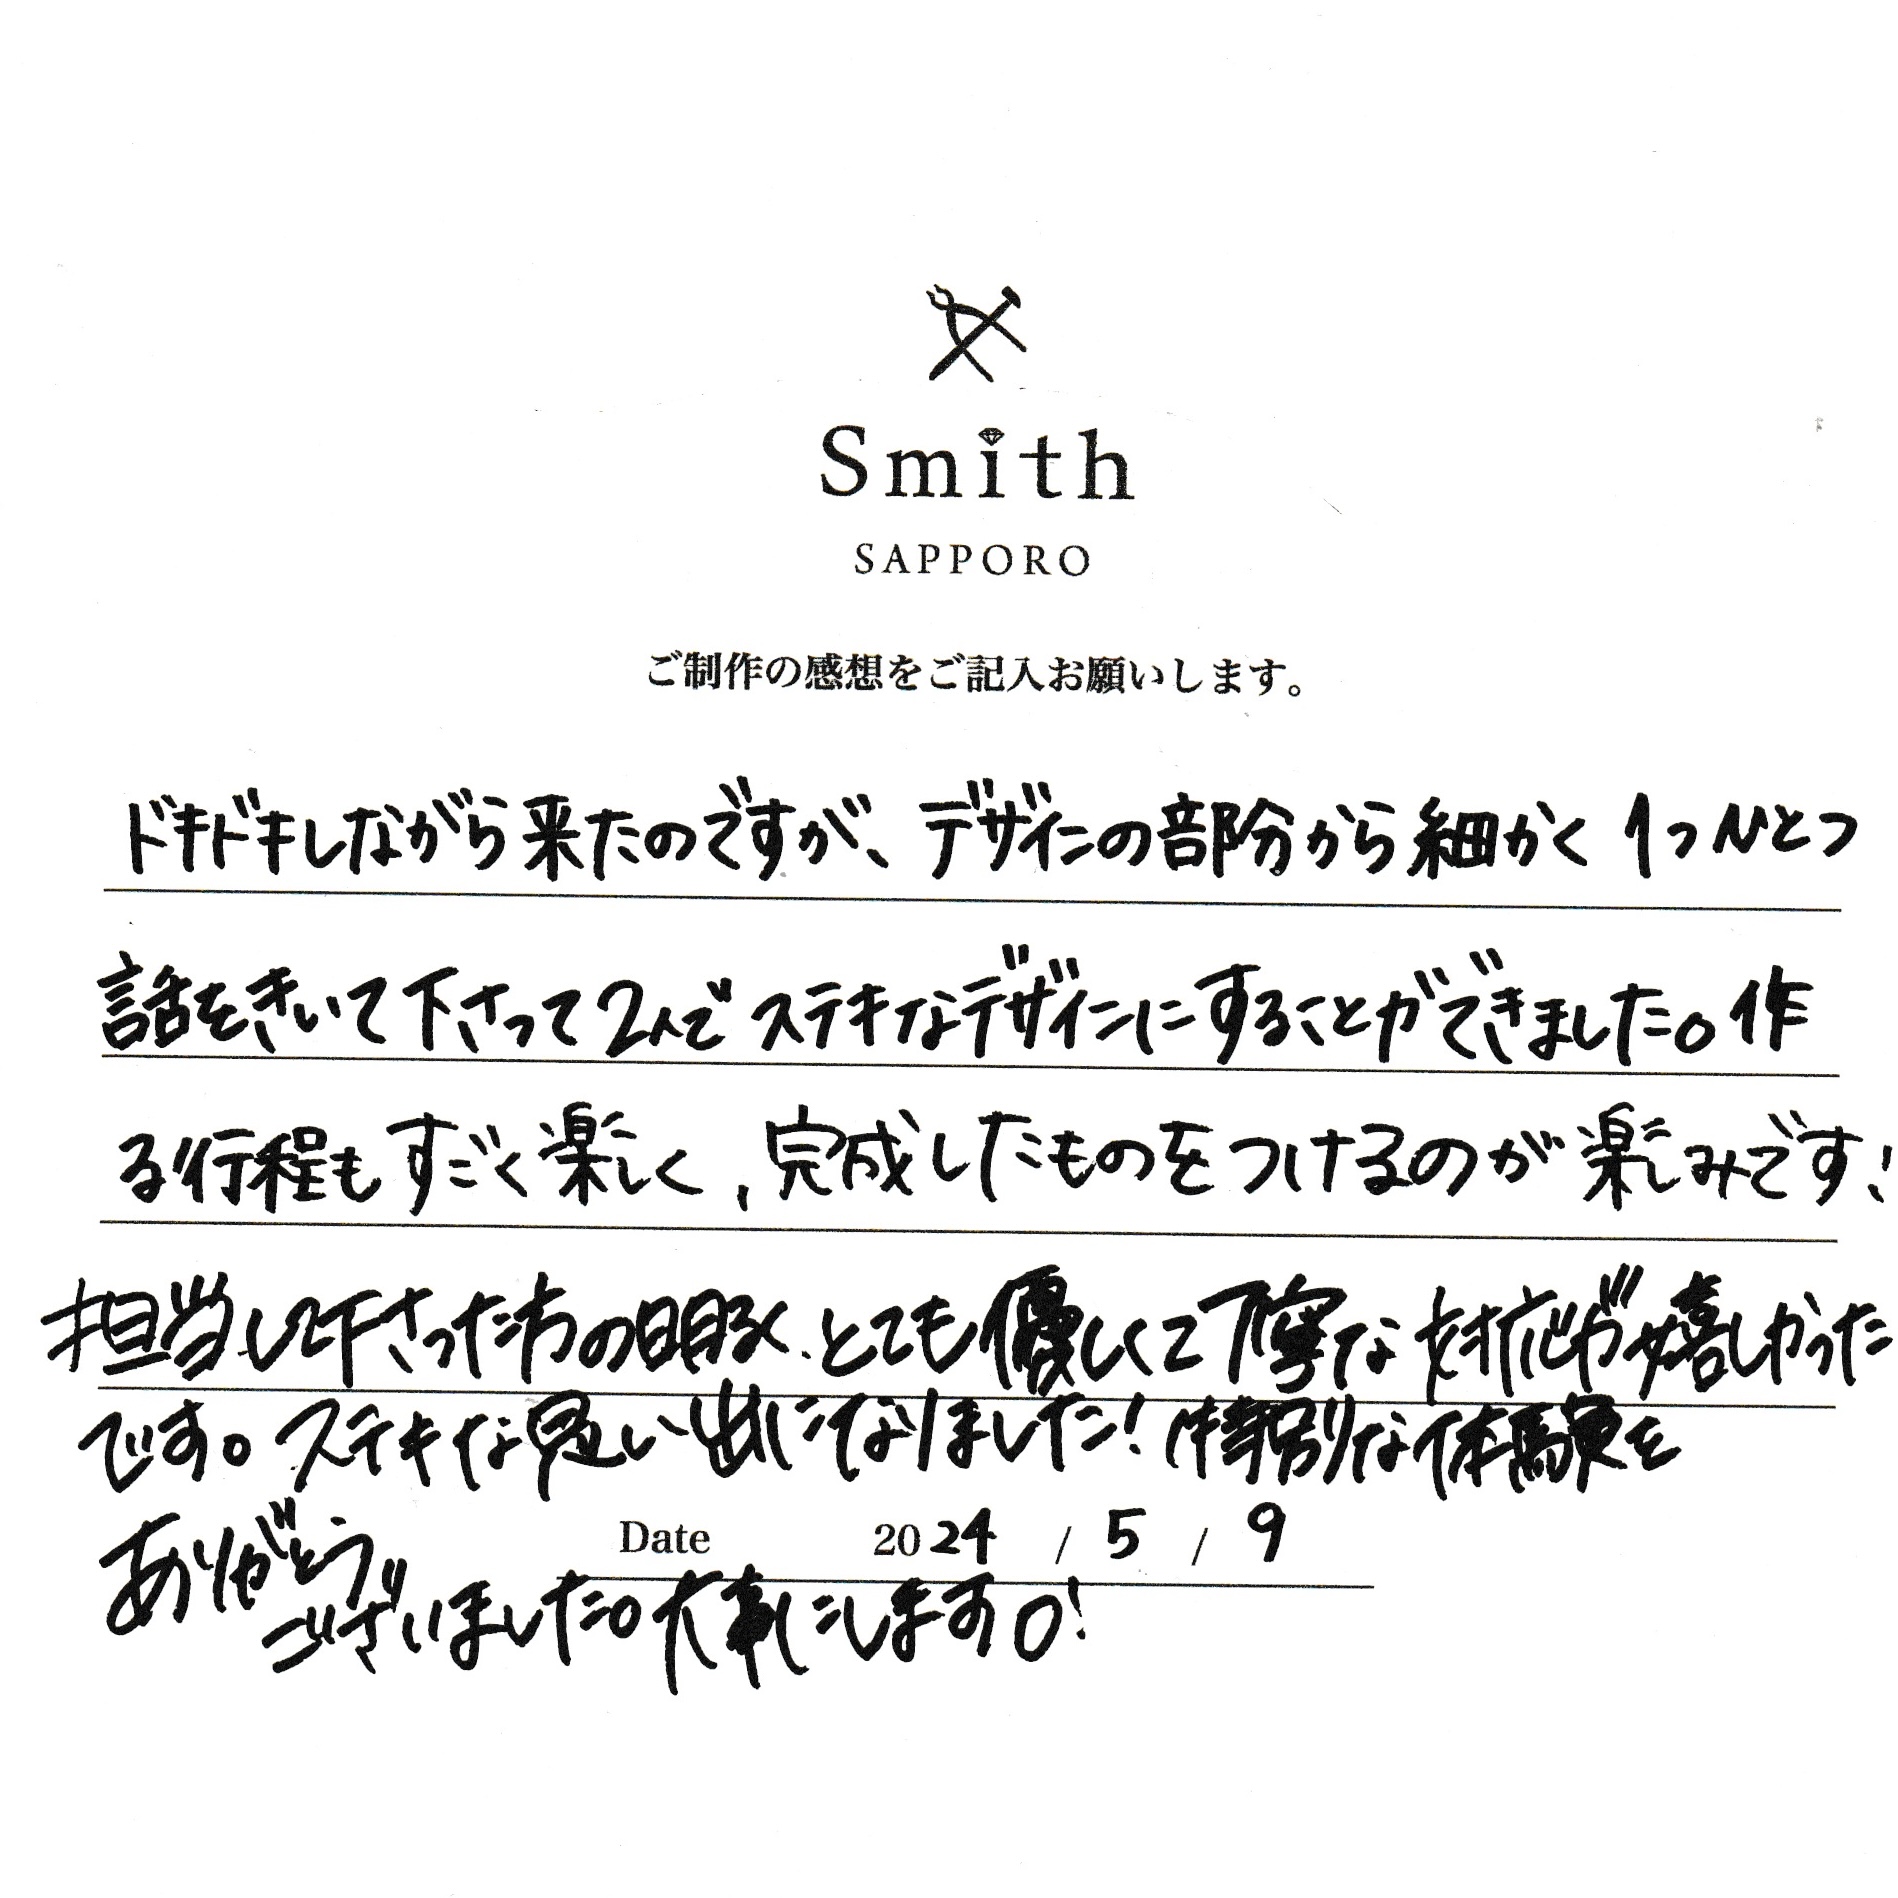 Smith
SAPPORO
ご制作の感想をご記入お願いします。
ドキドキしながら来たのですが、デザインの部分から細かく1つひとつ
話をきいて下さって2人でステキなデザインにすることができました。作
る行程もすごく楽しく、完成したものをつけるのが楽しみです!
担当して下さった方の明るく、とても優しくて丁寧な対応が嬉しかった
です。ステキな思い出になりました!特別な体験を
Date 2024 / 5 / 9
ありがとう
ございました。大事にします。!